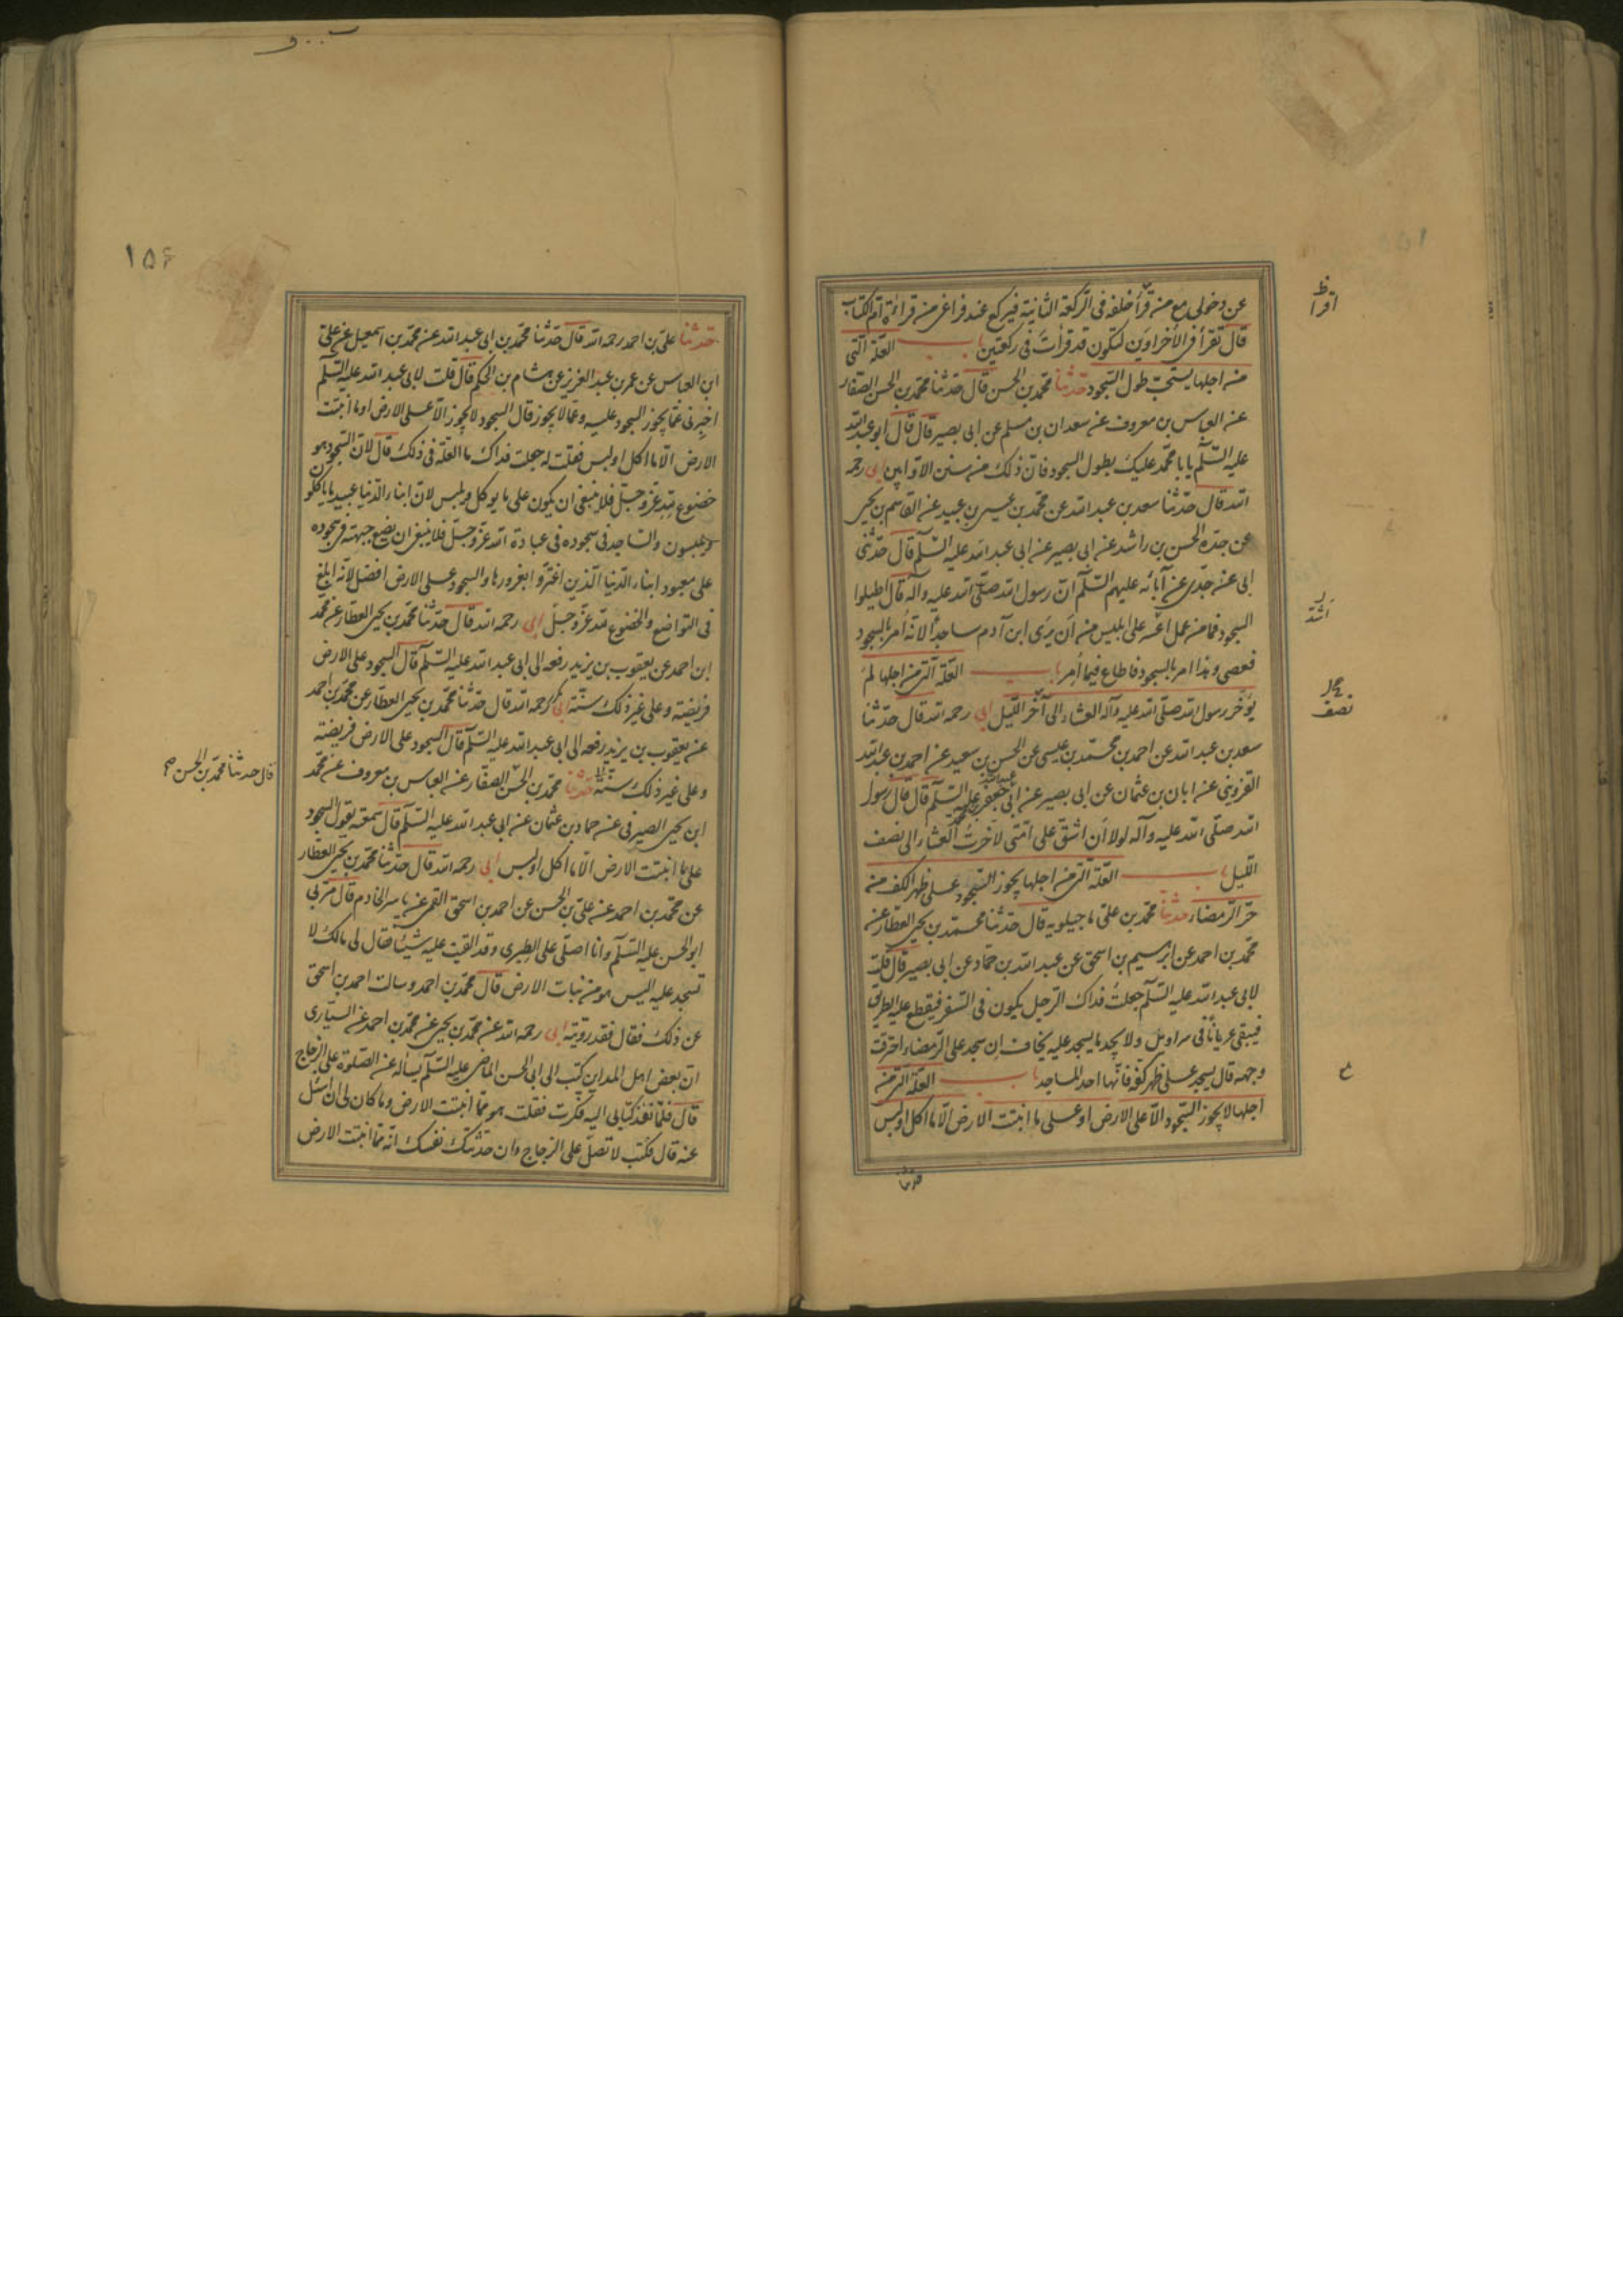 عن دخولى مع من قرأ خلفه فى الركعة الثانية فيركع عند فراغى من قراءة ام الكتاب
قال تقرأ فى الأخراوين لتكون قد قرأت فى ركعتين باب العلة التى
من اجلها يستحب طول السجود حدثنا محمد بن الحسن قال حدثنا محمد بن الحسن الصفار
عن العباس بن معروف عن سعدان بن مسلم عن ابى بصير قال قال ابو عبد الله
عليه السلم يا با محمد عليك بطول السجود فان ذلك من سنن الاوابين ابى رحمه
الله قال حدثنا سعد بن عبد الله عن محمد بن عيسى بن عبيد عن القاسم بن يحيى
عن جده الحسن بن راشد عن ابى بصير عن ابى عبد الله عليه السلم قال حدثنى
ابى عن جدى عن آبائه عليهم السلم ان رسول الله صلى الله عليه وآله قال اطيلوا
السجود فما من عمل اشد على ابليس من ان يرى ابن آدم ساجدا لانه أمر بالسجود
فعصى وهذا امر بالسجود فاطاع فيما أمر باب العلة التى من اجلها لم
يؤخر رسول الله صلى الله عليه وآله العشاء الى آخر الليل ابى رحمه الله قال حدثنا
سعد بن عبد الله عن احمد بن محمد بن عيسى عن الحسن بن سعيد عن احمد بن عبد الله
القزوينى عن ابان بن عثمان عن ابى بصير عن ابى جعفر عليه السلم قال قال رسول
الله صلى الله عليه وآله لولا ان اشق على امتى لاخرت العشاء الى نصف
الليل باب العلة التى من اجلها يجوز السجود على ظهر الكف من
حر الرمضاء حدثنا محمد بن على ماجيلويه قال حدثنا محمد بن يحيى العطار عن
محمد بن احمد عن ابرهيم بن اسحق عن عبد الله بن حماد عن ابى بصير قال قلت
لابى عبد الله عليه السلم جعلت فداك الرجل يكون فى السفر فيقطع عليه الطريق
فيبقى عريانا فى سراويل ولا يجد ما يسجد عليه يخاف ان سجد على الرمضاء احرقت
وجهه قال يسجد على ظهر كفه فانها احد المساجد باب العلة التى من
اجلها لا يجوز السجود الا على الارض او على ما انبتت الارض الا ما اكل او لبس
حدثنا
اقرأ
اشد
نصف
١٥٦
حدثنا على بن احمد رحمه الله قال حدثنا محمد بن ابى عبد الله عن محمد بن اسمعيل عن على
ابن العباس عن عمر بن عبد العزيز عن هشام بن الحكم قال قلت لابى عبد الله عليه السلم
اخبرنى عما يجوز السجود عليه وعما لا يجوز قال السجود لا يجوز الا على الارض او ما انبتت
الارض الا ما اكل او لبس فقلت له جعلت فداك ما العلة فى ذلك قال لان السجود هو
خضوع لله عز وجل فلا ينبغى ان يكون على ما يوكل ويلبس لان ابناء الدنيا عبيد ما ياكلون
ويلبسون والساجد فى سجوده فى عبادة الله عز وجل فلا ينبغى ان يضع جبهته فى سجوده
على معبود ابناء الدنيا الذين اغتروا بغرورها والسجود على الارض افضل لانه ابلغ
فى التواضع والخضوع لله عز وجل ابى رحمه الله قال حدثنا محمد بن يحيى العطار عن محمد
ابن احمد عن يعقوب بن يزيد رفعه الى ابى عبد الله عليه السلم قال السجود على الارض
فريضة وعلى غير ذلك سنة ابى رحمه الله قال حدثنا محمد بن يحيى العطار عن محمد بن احمد
عن يعقوب بن يزيد رفعه الى ابى عبد الله عليه السلم قال السجود على الارض فريضة
وعلى غير ذلك سنة حدثنا محمد بن الحسن الصفار عن العباس بن معروف عن محمد
ابن يحيى الصيرفى عن حماد بن عثمان عن ابى عبد الله عليه السلم قال سمعته يقول السجود
على ما انبتت الارض الا ما اكل او لبس ابى رحمه الله قال حدثنا محمد بن يحيى العطار
عن محمد بن احمد عن على بن الحسن عن احمد بن اسحق القمى عن ياسر الخادم قال مر بى
ابو الحسن عليه السلم وانا اصلى على الطبرى وقد القيت عليه شيئا فقال لى مالك لا
تسجد عليه اليس هو من نبات الارض قال محمد بن احمد وسالت احمد بن اسحق
عن ذلك فقال فقد رويته ابى رحمه الله عن محمد بن يحيى عن محمد بن احمد عن السيارى
ان بعض اهل المداين كتب الى ابى الحسن الماضى عليه السلم يسأله عن الصلوة على الزجاج
قال فلما نفذ كتابى اليه فكرت فقلت هو مما انبتت الارض وما كان لى ان اسئل
عنه قال فكتب لا تصل على الزجاج وان حدثتك نفسك انه مما انبتت الارض
قال حدثنا محمد بن الحسن